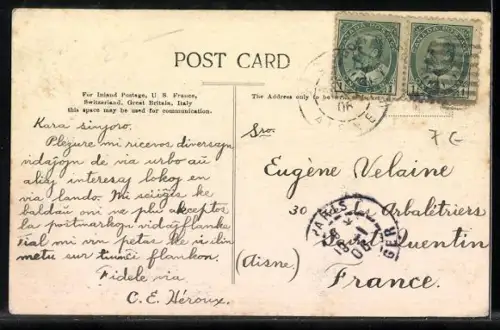 POST CARD
For Inland Postage, U. S. France,
Switzerland, Great Britain, Italy
this space may be used for communication.
The Address only to be
Kara sinjoro.
Plezure mi ricevos diversajn
vidaĵojn de via urbo aŭ
aliaj interesaj lokoj en
via lando. Mi sciiĝis ke
baldaŭ oni ne plu akceptos
la poŝtmarkojn vidaĵflanke
tial mi vin petas ke vi ilin
metu sur tiun ĉi flankon.
Fidele via
C. E. Héroux.
Sro.
Eugène Velaine
30 Arbalétriers
St Quentin
(Aisne)
France.
7 G
CANADA POSTAGE
CANADA POSTAGE
06
PARIS
06